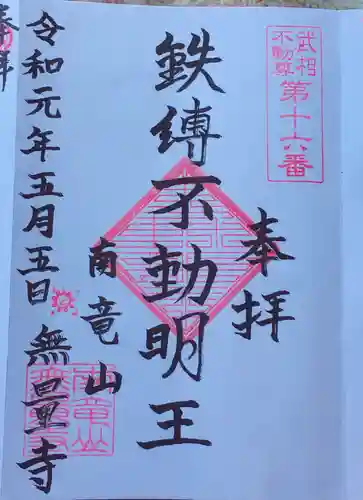 武相
不動尊
第十六番
奉拝
鉄縛不動明王
南竜山
無量寺
令和元年五月五日
奉拝